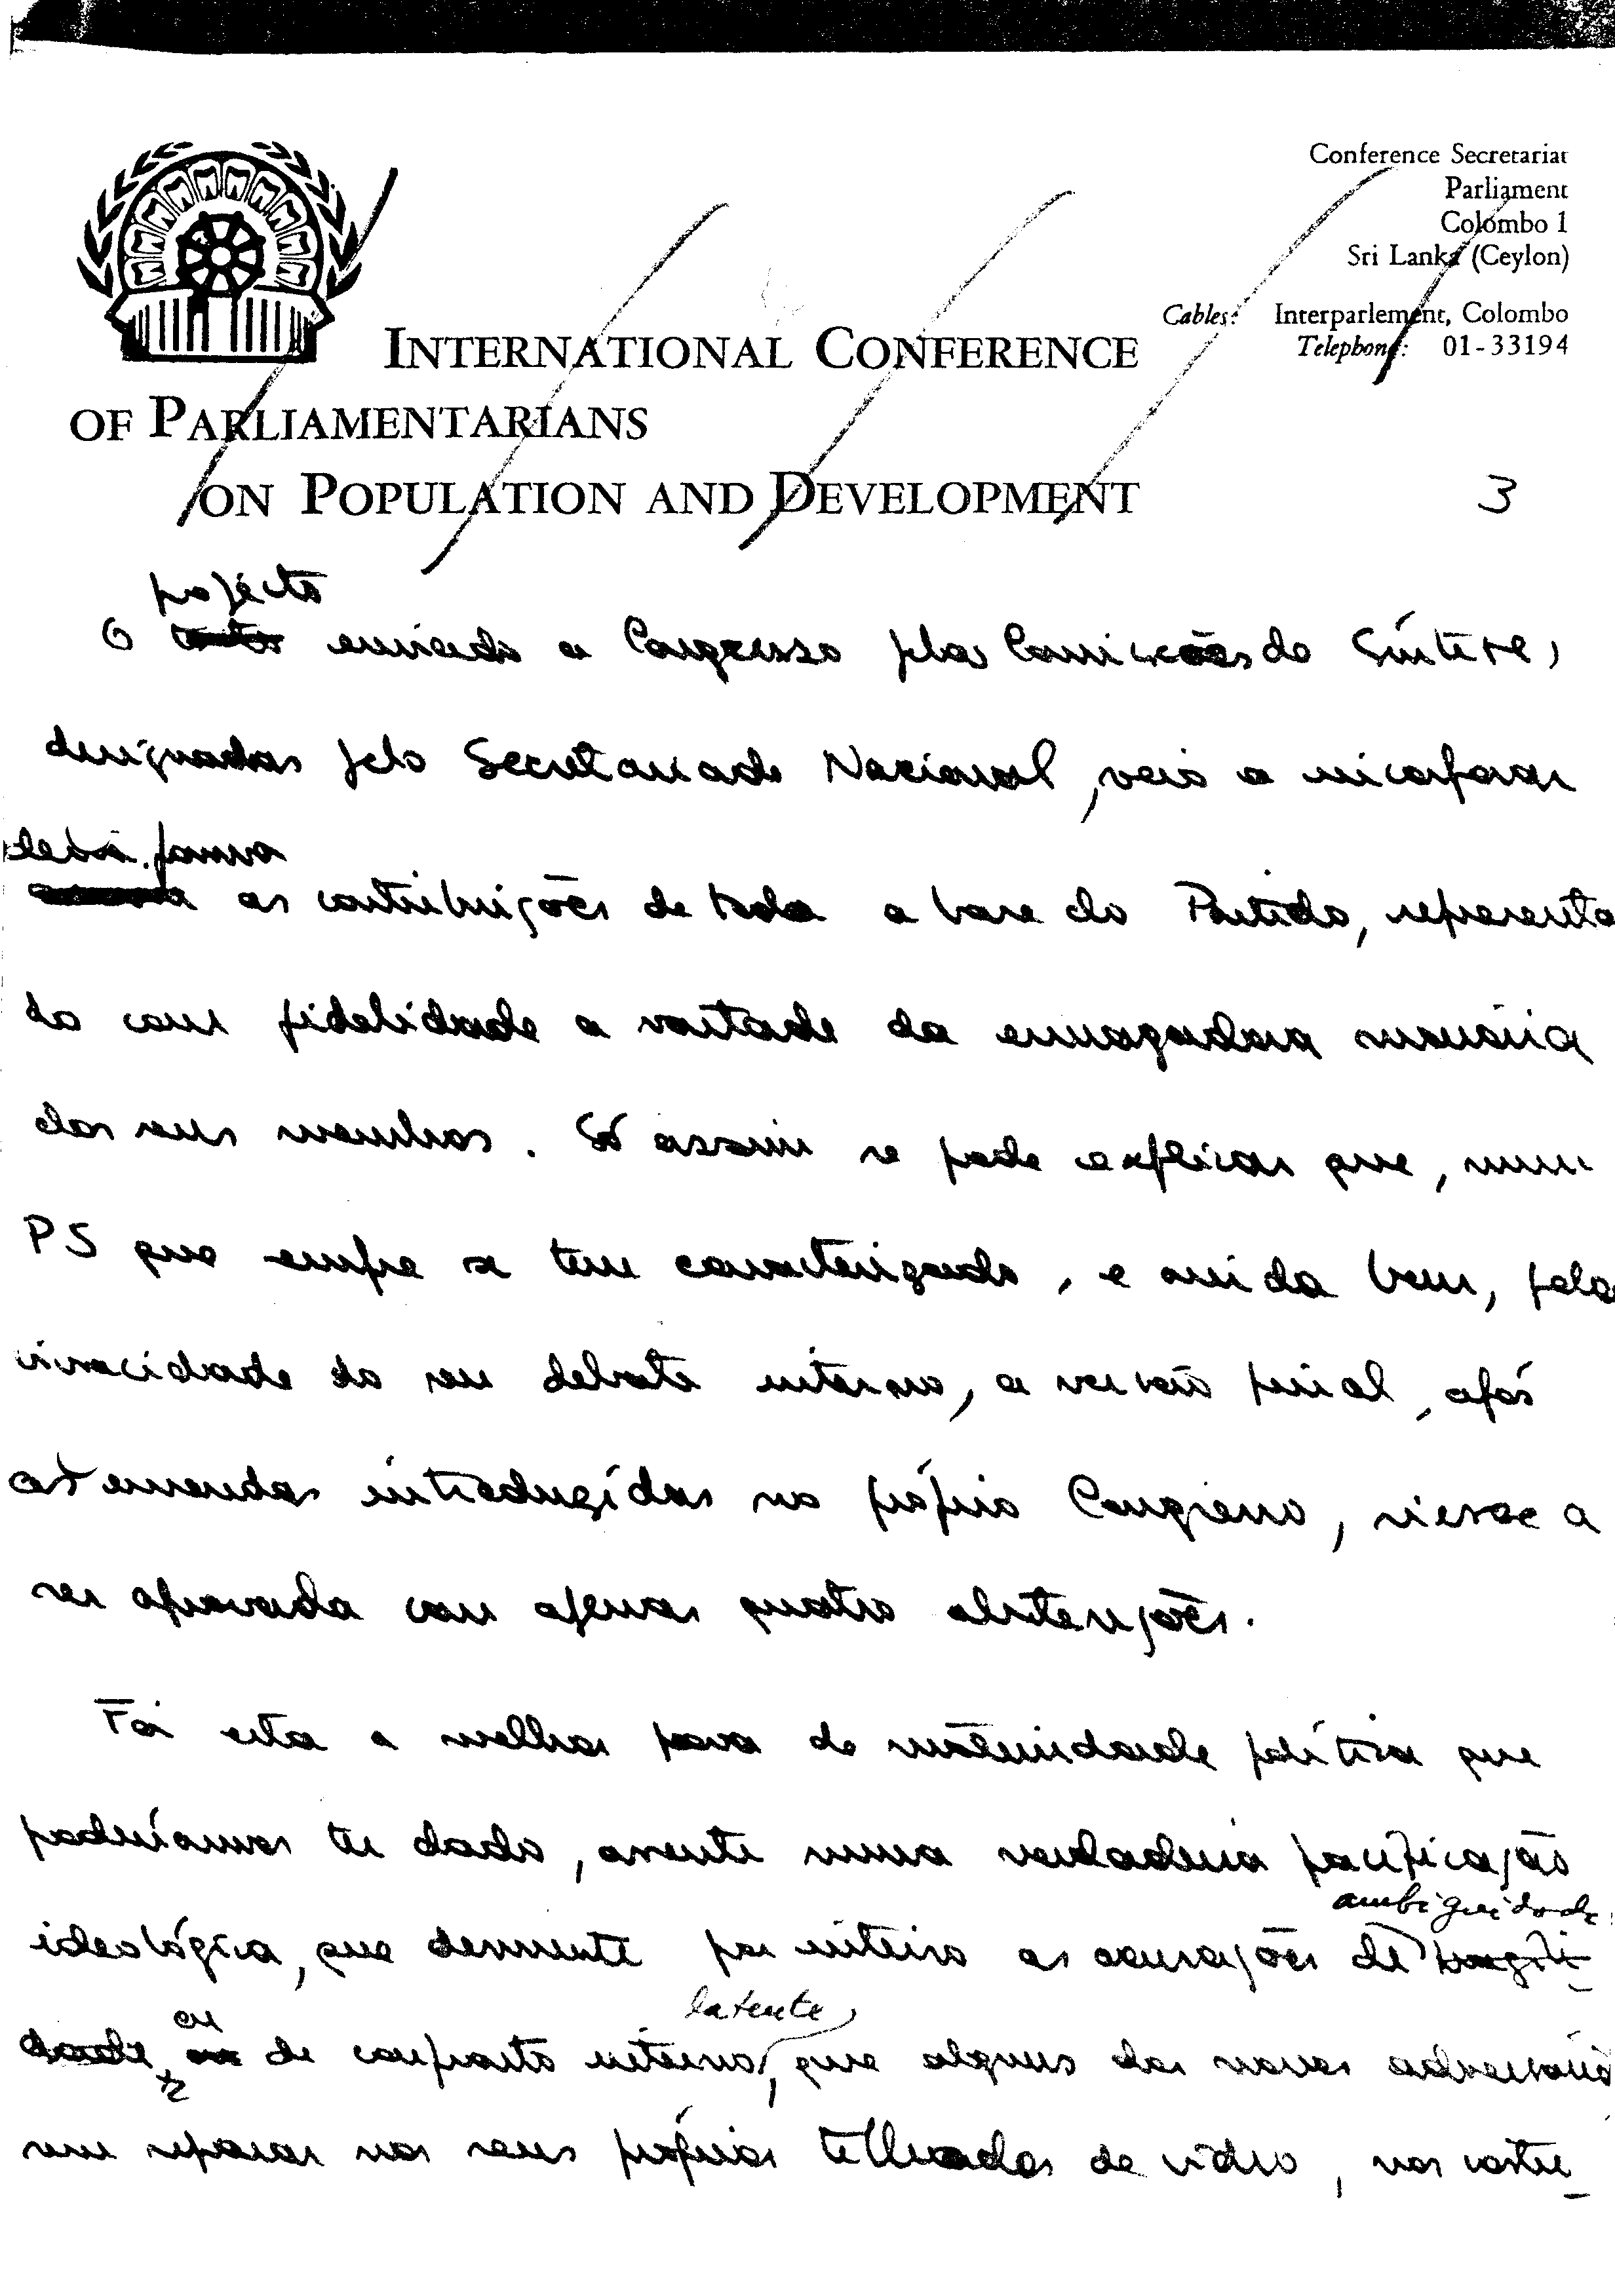 Conference Secretariat
Parliament
Colombo 1
Sri Lanka (Ceylon)
Cables: Interparlement, Colombo
Telephone: 01-33194
INTERNATIONAL CONFERENCE
OF PARLIAMENTARIANS
ON POPULATION AND DEVELOPMENT
3
projecto
O texto enviado a Congresso pelas Comissões de Síntese,
designadas pelo Secretariado Nacional, veio a incorporar
desta forma
as contribuições de toda a base do Partido, representa
do com fidelidade a vontade da esmagadora maioria
dos seus membros. Só assim se pode explicar que, num
PS que sempre se tem caracterizado, e ainda bem, pela
vivacidade do seu debate interno, a versão final, após
as emendas introduzidas no próprio Congresso, viesse a
ser aprovada com apenas quatro abstenções.
Foi esta a melhor prova de maturidade política que
poderíamos ter dado, assente numa verdadeira pacificação
ambiguidade
ideológica, que desmente por inteiro as acusações de fragili-
ou
latente
dade, de confronto interno, que alguns dos nossos adversários
sem reparar nos seus próprios telhados de vidro, nos costu-